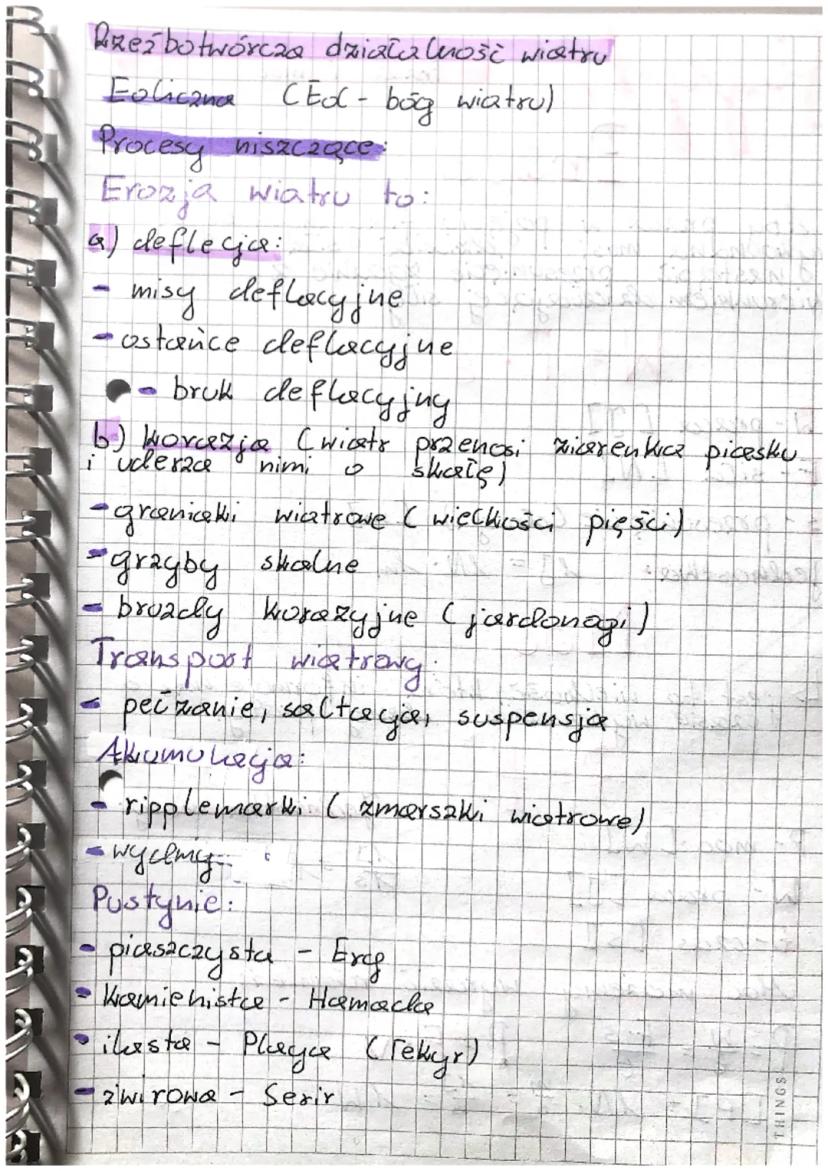 Rzeźbotwórcza działalność wiatru
Eoliczna (Eol - bóg wiatru)
Procesy niszczące:
Erozja wiatru to:
a) deflacja:
- misy deflacyjne
- ostańce deflacyjne
- bruk deflacyjny
b) korazja (wiatr przenosi ziarenka piasku
i uderza nimi o skałę)
- graniaki wiatrowe (wielkości pięści)
- grzyby skalne
- bruzdy korazyjne (jardangi)
Transport wiatrowy:
- pełzanie, saltacja, suspensja
Akumulacja:
- ripplemarki (zmarszki wiatrowe)
- wydmy
Pustynie:
- piaszczysta - Erg
- kamienista - Hamada
- ilasta - Playa (Tekyr)
- żwirowa - Serir
THINGS